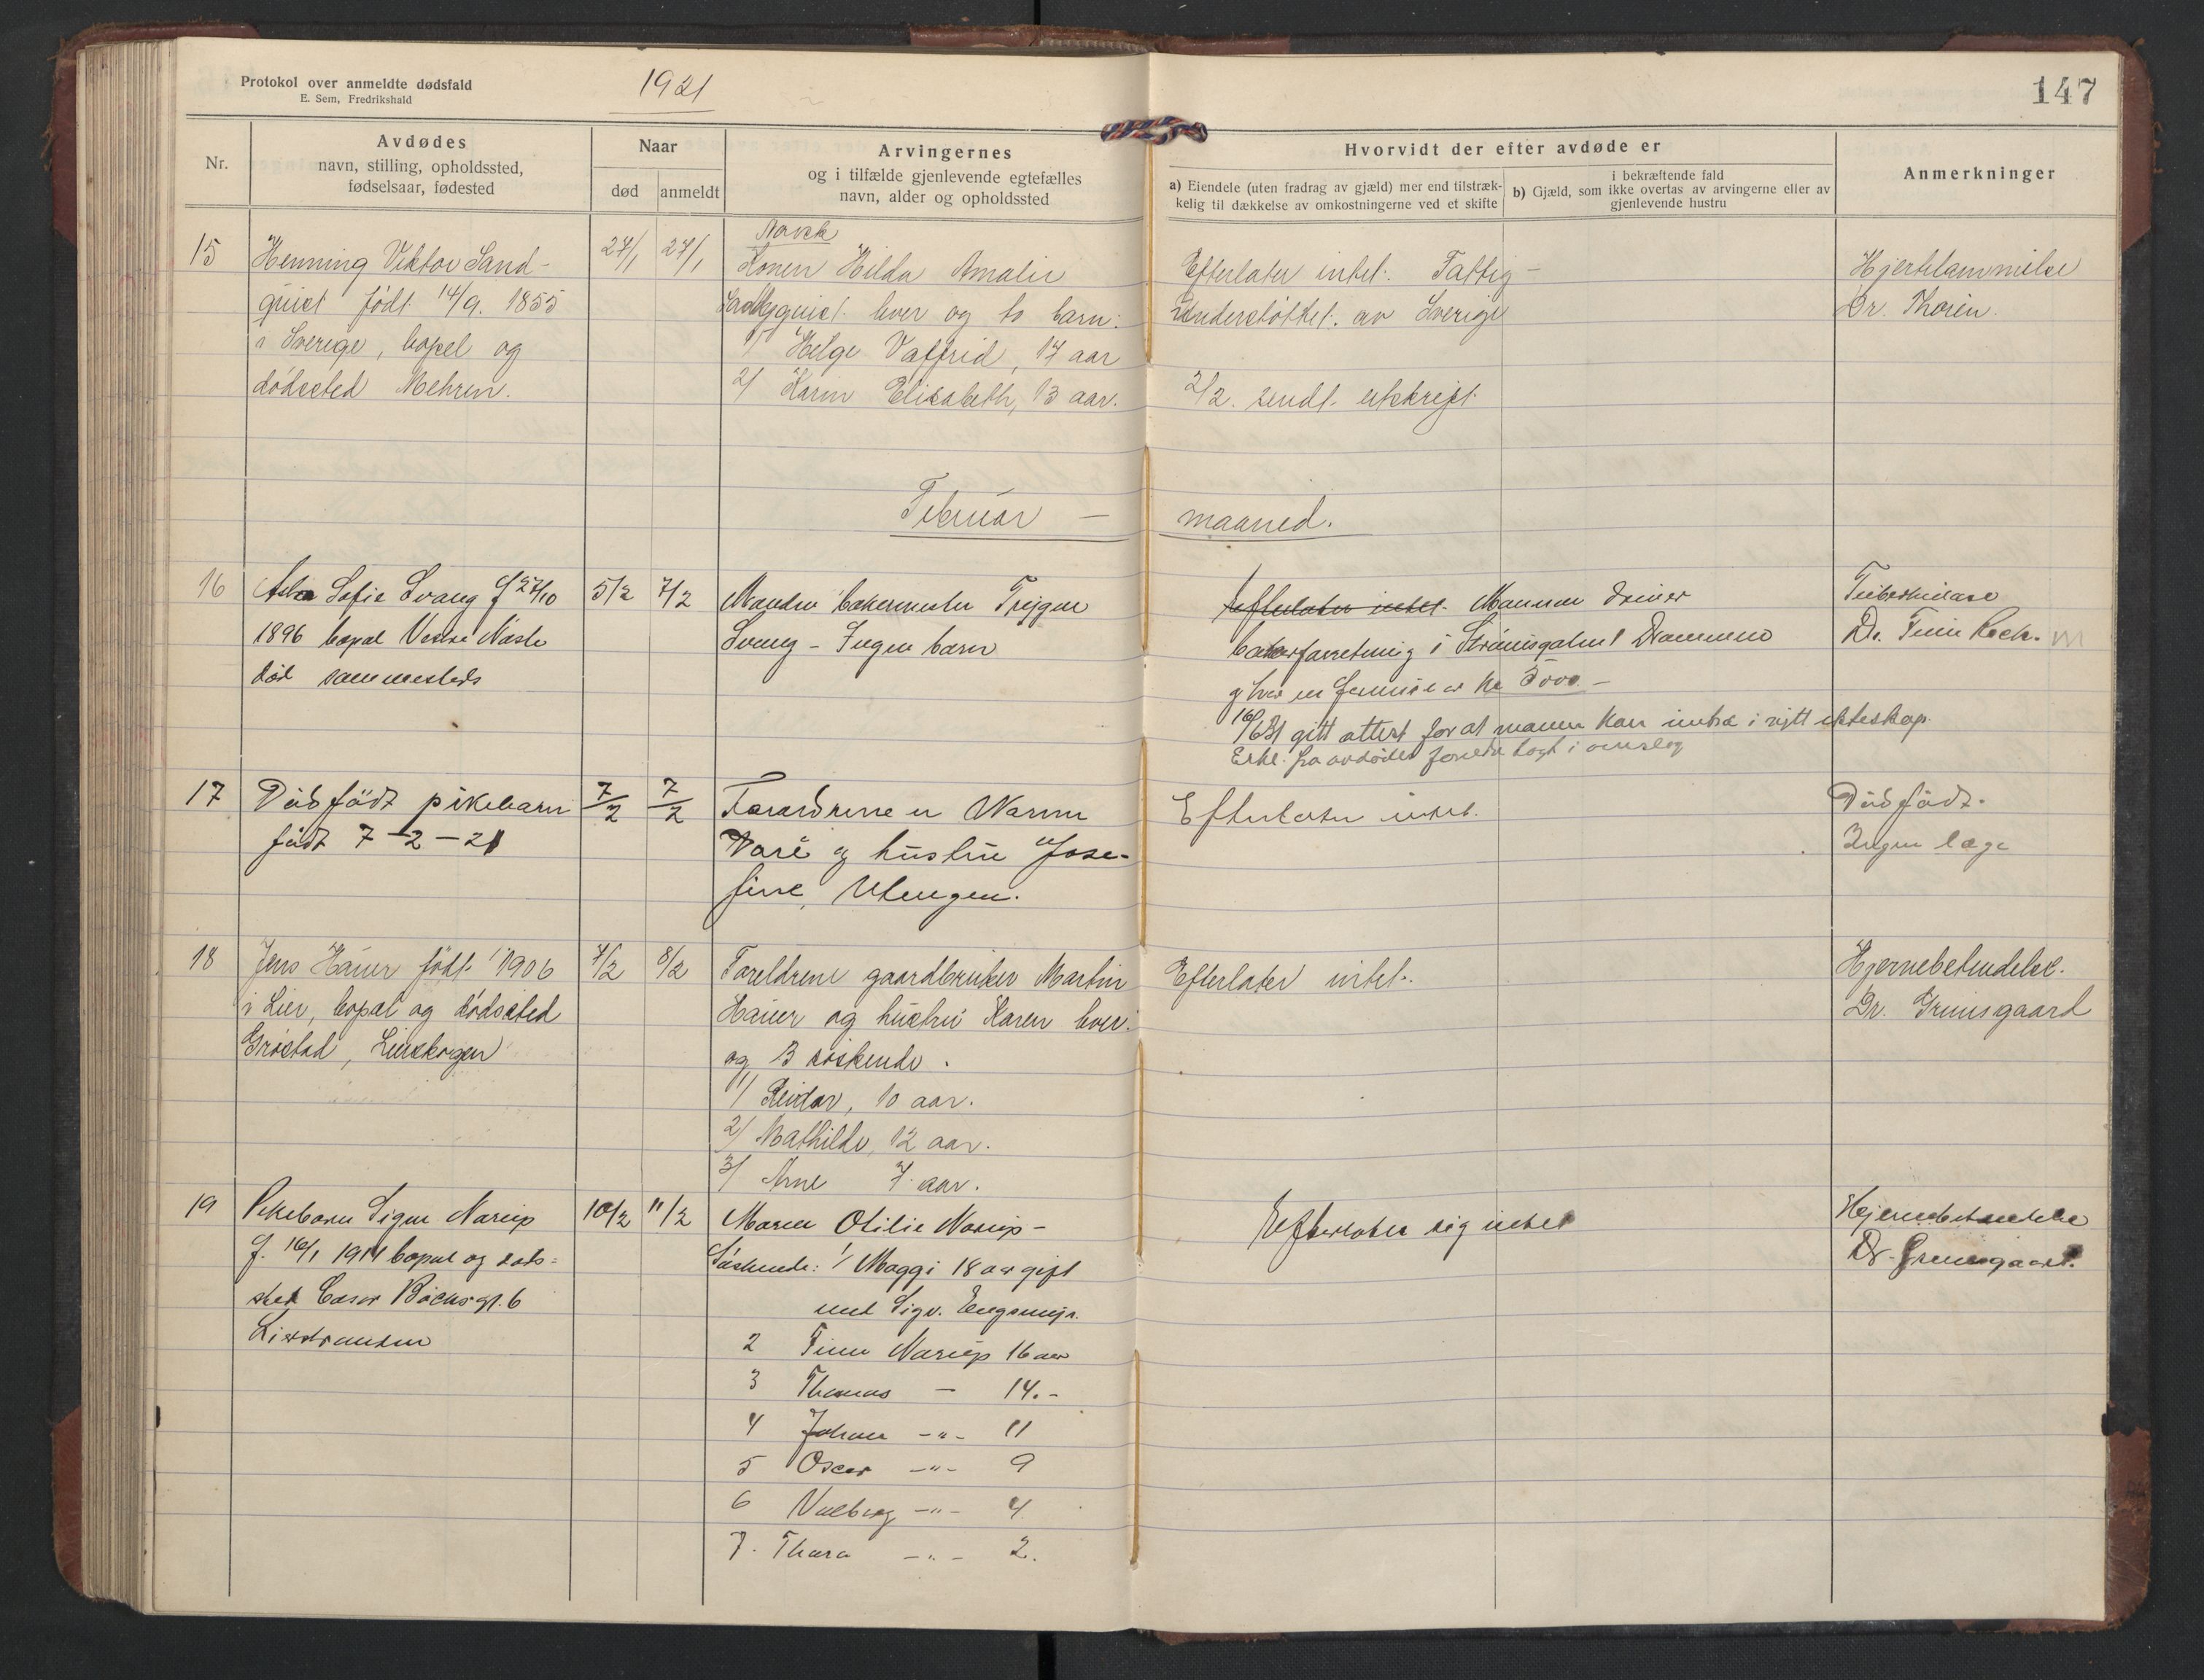 Protokol over anmeldte dødsfald
E. Sem, Fredrikshald
1921
147
Nr.
Avdødes
navn, stilling, opholdssted,
fødselsaar, fødested
Naar
død
anmeldt
Arvingernes
og i tilfælde gjenlevende egtefælles
navn, alder og opholdssted
Hvorvidt der efter avdøde er
a) Eiendele (uten fradrag av gjæld) mer end tilstræk-
kelig til dækkelse av omkostningerne ved et skifte
i bekræftende fald
b) Gjæld, som ikke overtas av arvingerne eller av
gjenlevende hustru
Anmerkninger
15
Henning Viktor Sand-
quist født 14/9. 1855
i Sverige, bopel og
dødssted Mehren.
27/1
27/1
Norsk
Konen Hilda Amalie
Sandquist lever og to barn:
1/ Helge Valfrid, 17 aar
2/ Karin Elisabeth, 13 aar.
Efterlater intet. Fattig-
understøttet. av Sverige
2/2. sendt utskrift.
Hjertelammelse
Dr. Thorén.
Februar —
maaned.
16
Sofie Svang f 27/10
1896 bopæl Næste
død sammesteds
5/2
7/2
Manden bakermester Trygve
Svang - Ingen barn
Efterlater intet. Mannen driver
bakerforretning i Strømsgodset Drammen
16/6 21 gitt attest for at mannen kan inntræ i nytt ekteskap.
Erkl. fra avdødes foreldre lagt i omslag
Tuberkulose
Dr.
17
Dødfødt pikebarn
født 7-2-21
7/2
7/2
Forældrene er
og hustru Jose-
fine, Utengen.
Efterlater intet.
Dødfødt.
Ingen læge
18
Jens Hauer født 1906
i Lier, bopæl og dødssted
Grøstad, Lierskogen
7/2
8/2
Foreldrene gaardbruker Martin
Hauer og hustru Karen lever.
og 3 søskende.
1/ Reidar, 10 aar.
2/ Mathilde, 12 aar.
3/ Arne 7 aar.
Efterlater intet.
Hjernebetendelse.
Dr. Grimsgaard
19
Pikebarn Signe Narup
f. 16/1 1911 bopæl og døds=
sted 6
Lierstranden
10/2
11/2
Maren Otilie Narup -
Søskende: 1/ Maggi 18 aar gift
med Sigv.
2 Finn Narup 16 aar
3 Thomas - 14.-
4 Johan -"- 11
5 Oscar -"- 9
6 Valborg -"- 4
7. Thora -"- 2.
Efterlater sig intet
Hjernebetændelse
Dr. Grimsgaard.